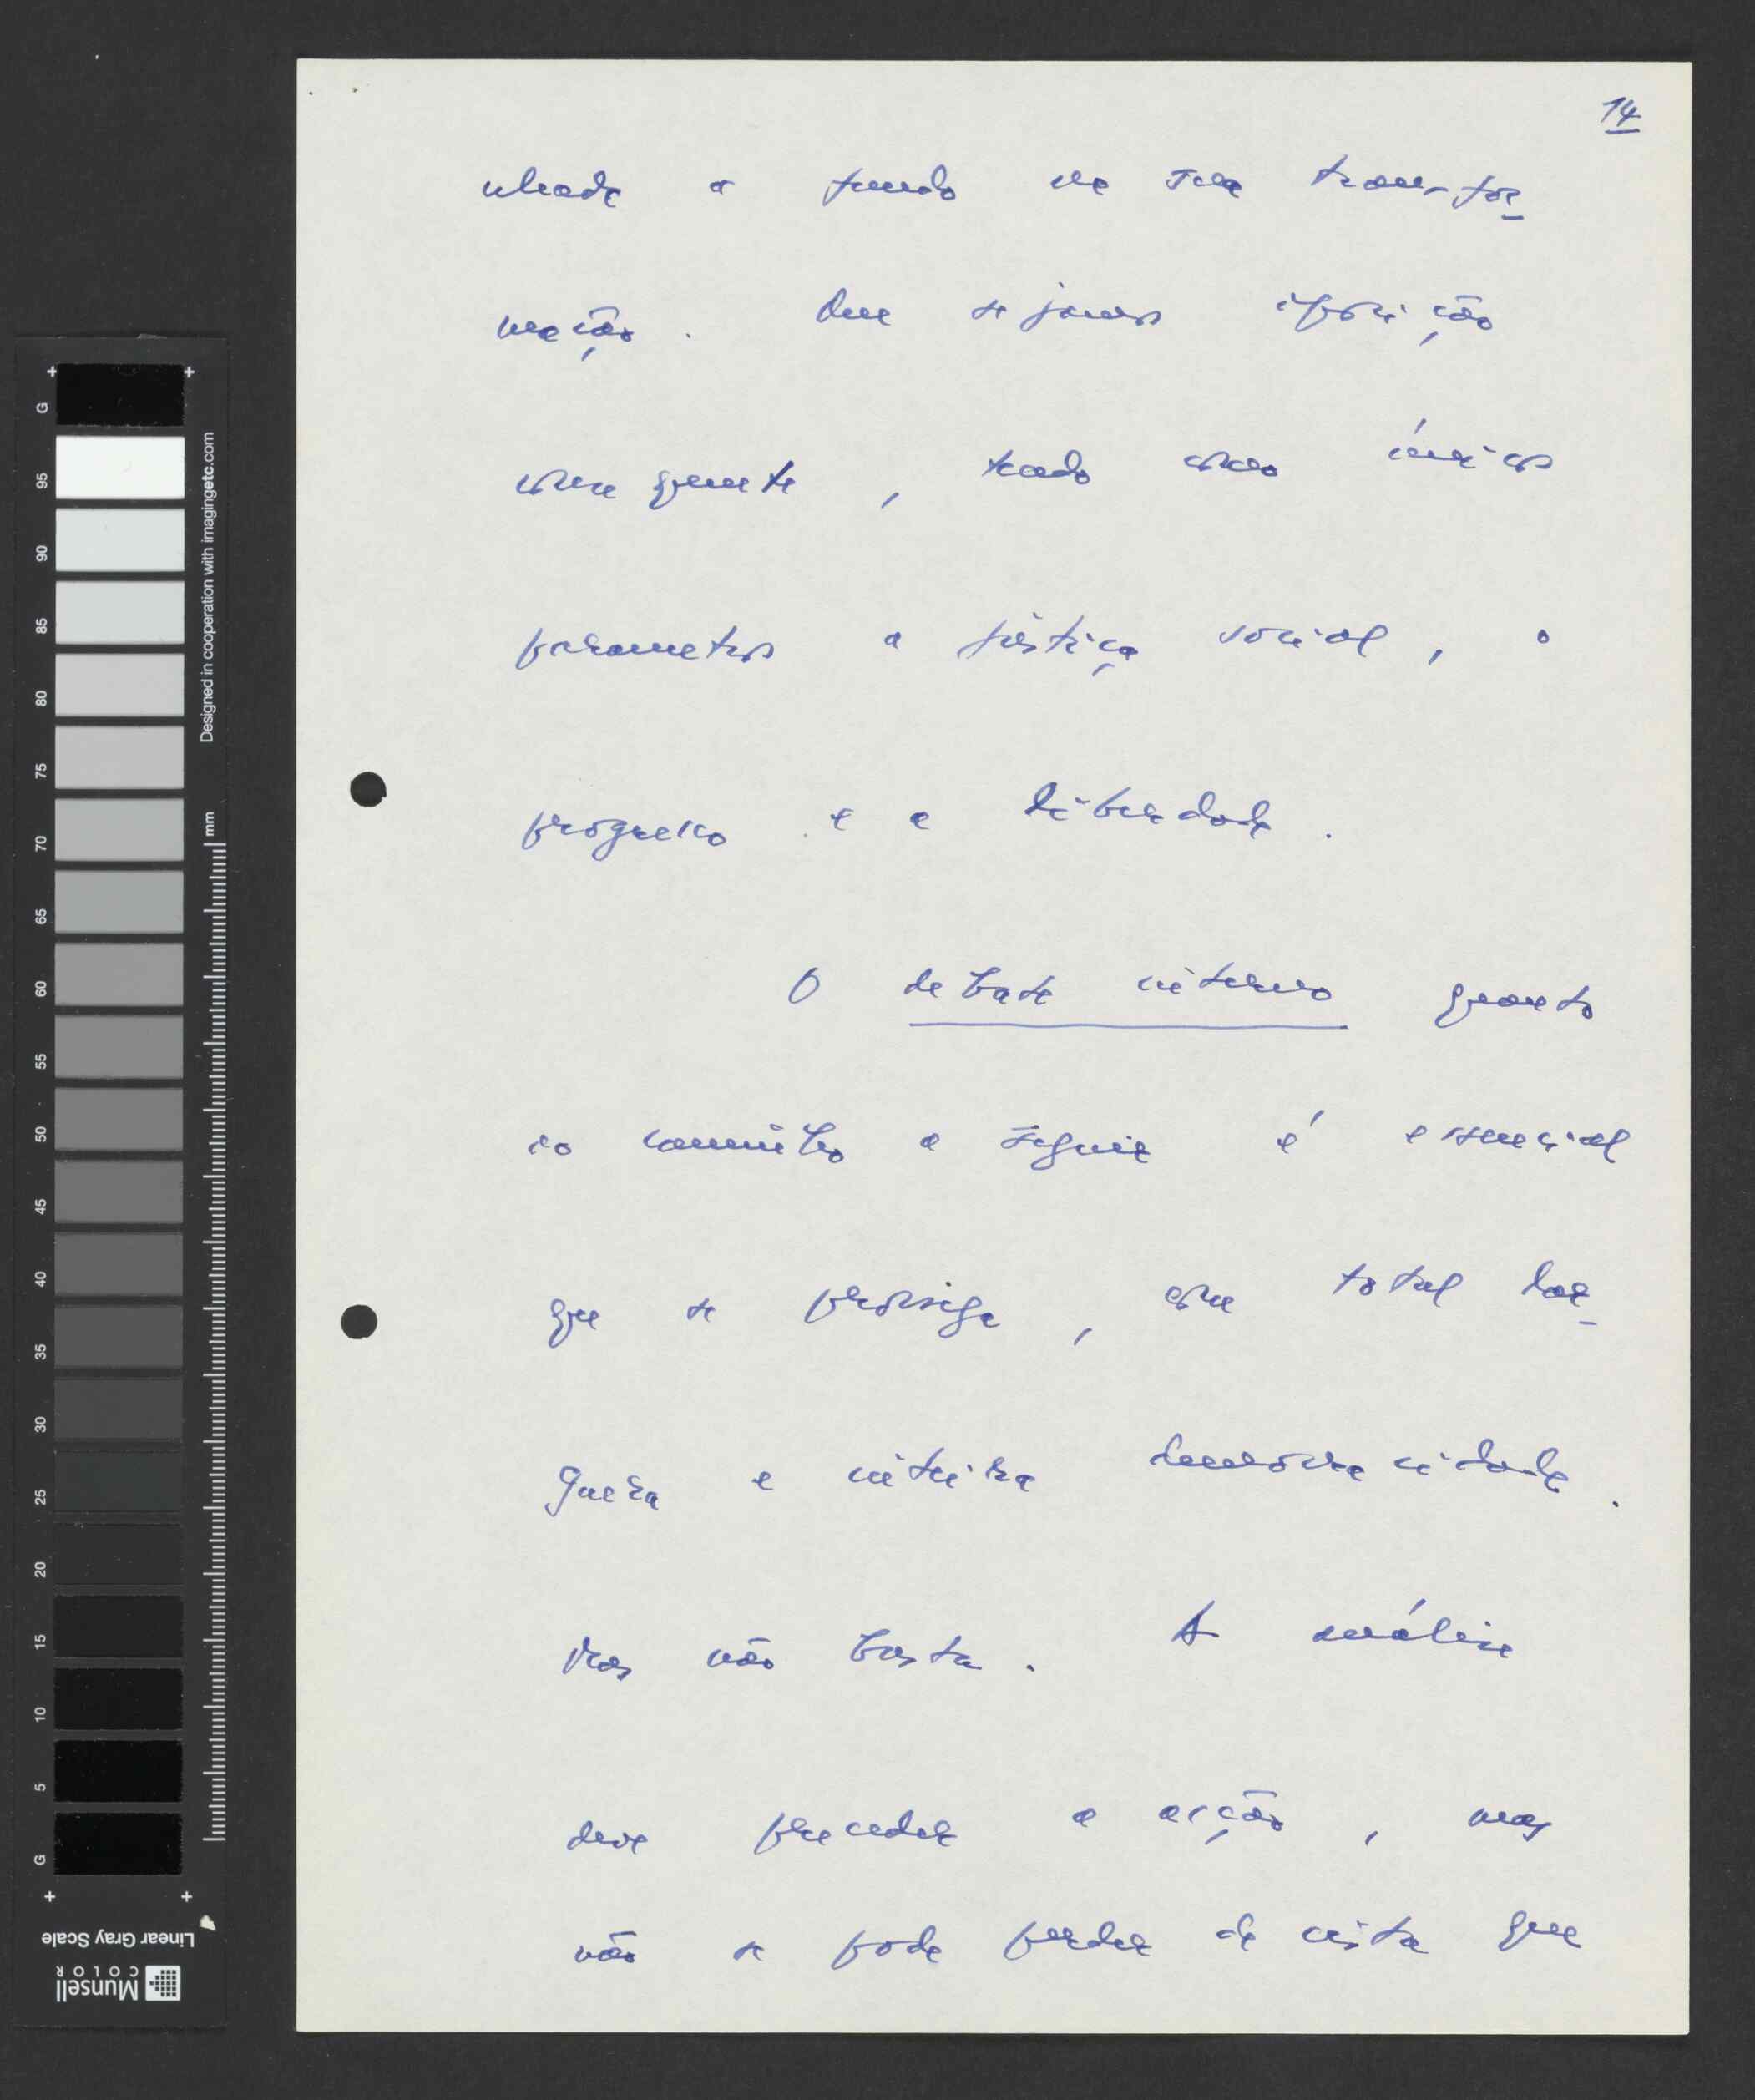 14
nhada a fundo na sua transfor-
mação. Que sejamos oposição
consequente, tendo como únicos
parametros a justiça social, o
progresso e a liberdade.
O debate interno quanto
ao caminho a seguir é essencial
que se prossiga, com total lar-
gueza e inteira democraticidade.
Mas não basta. A análise
deve preceder a acção, mas
não se pode perder de vista que
G 95 90 85 80 75 70 65 60 55 50 45 40 35 30 25 20 15 10 5 G
Designed in cooperation with imagingetc.com
mm
Linear Gray Scale
Munsell
COLOR